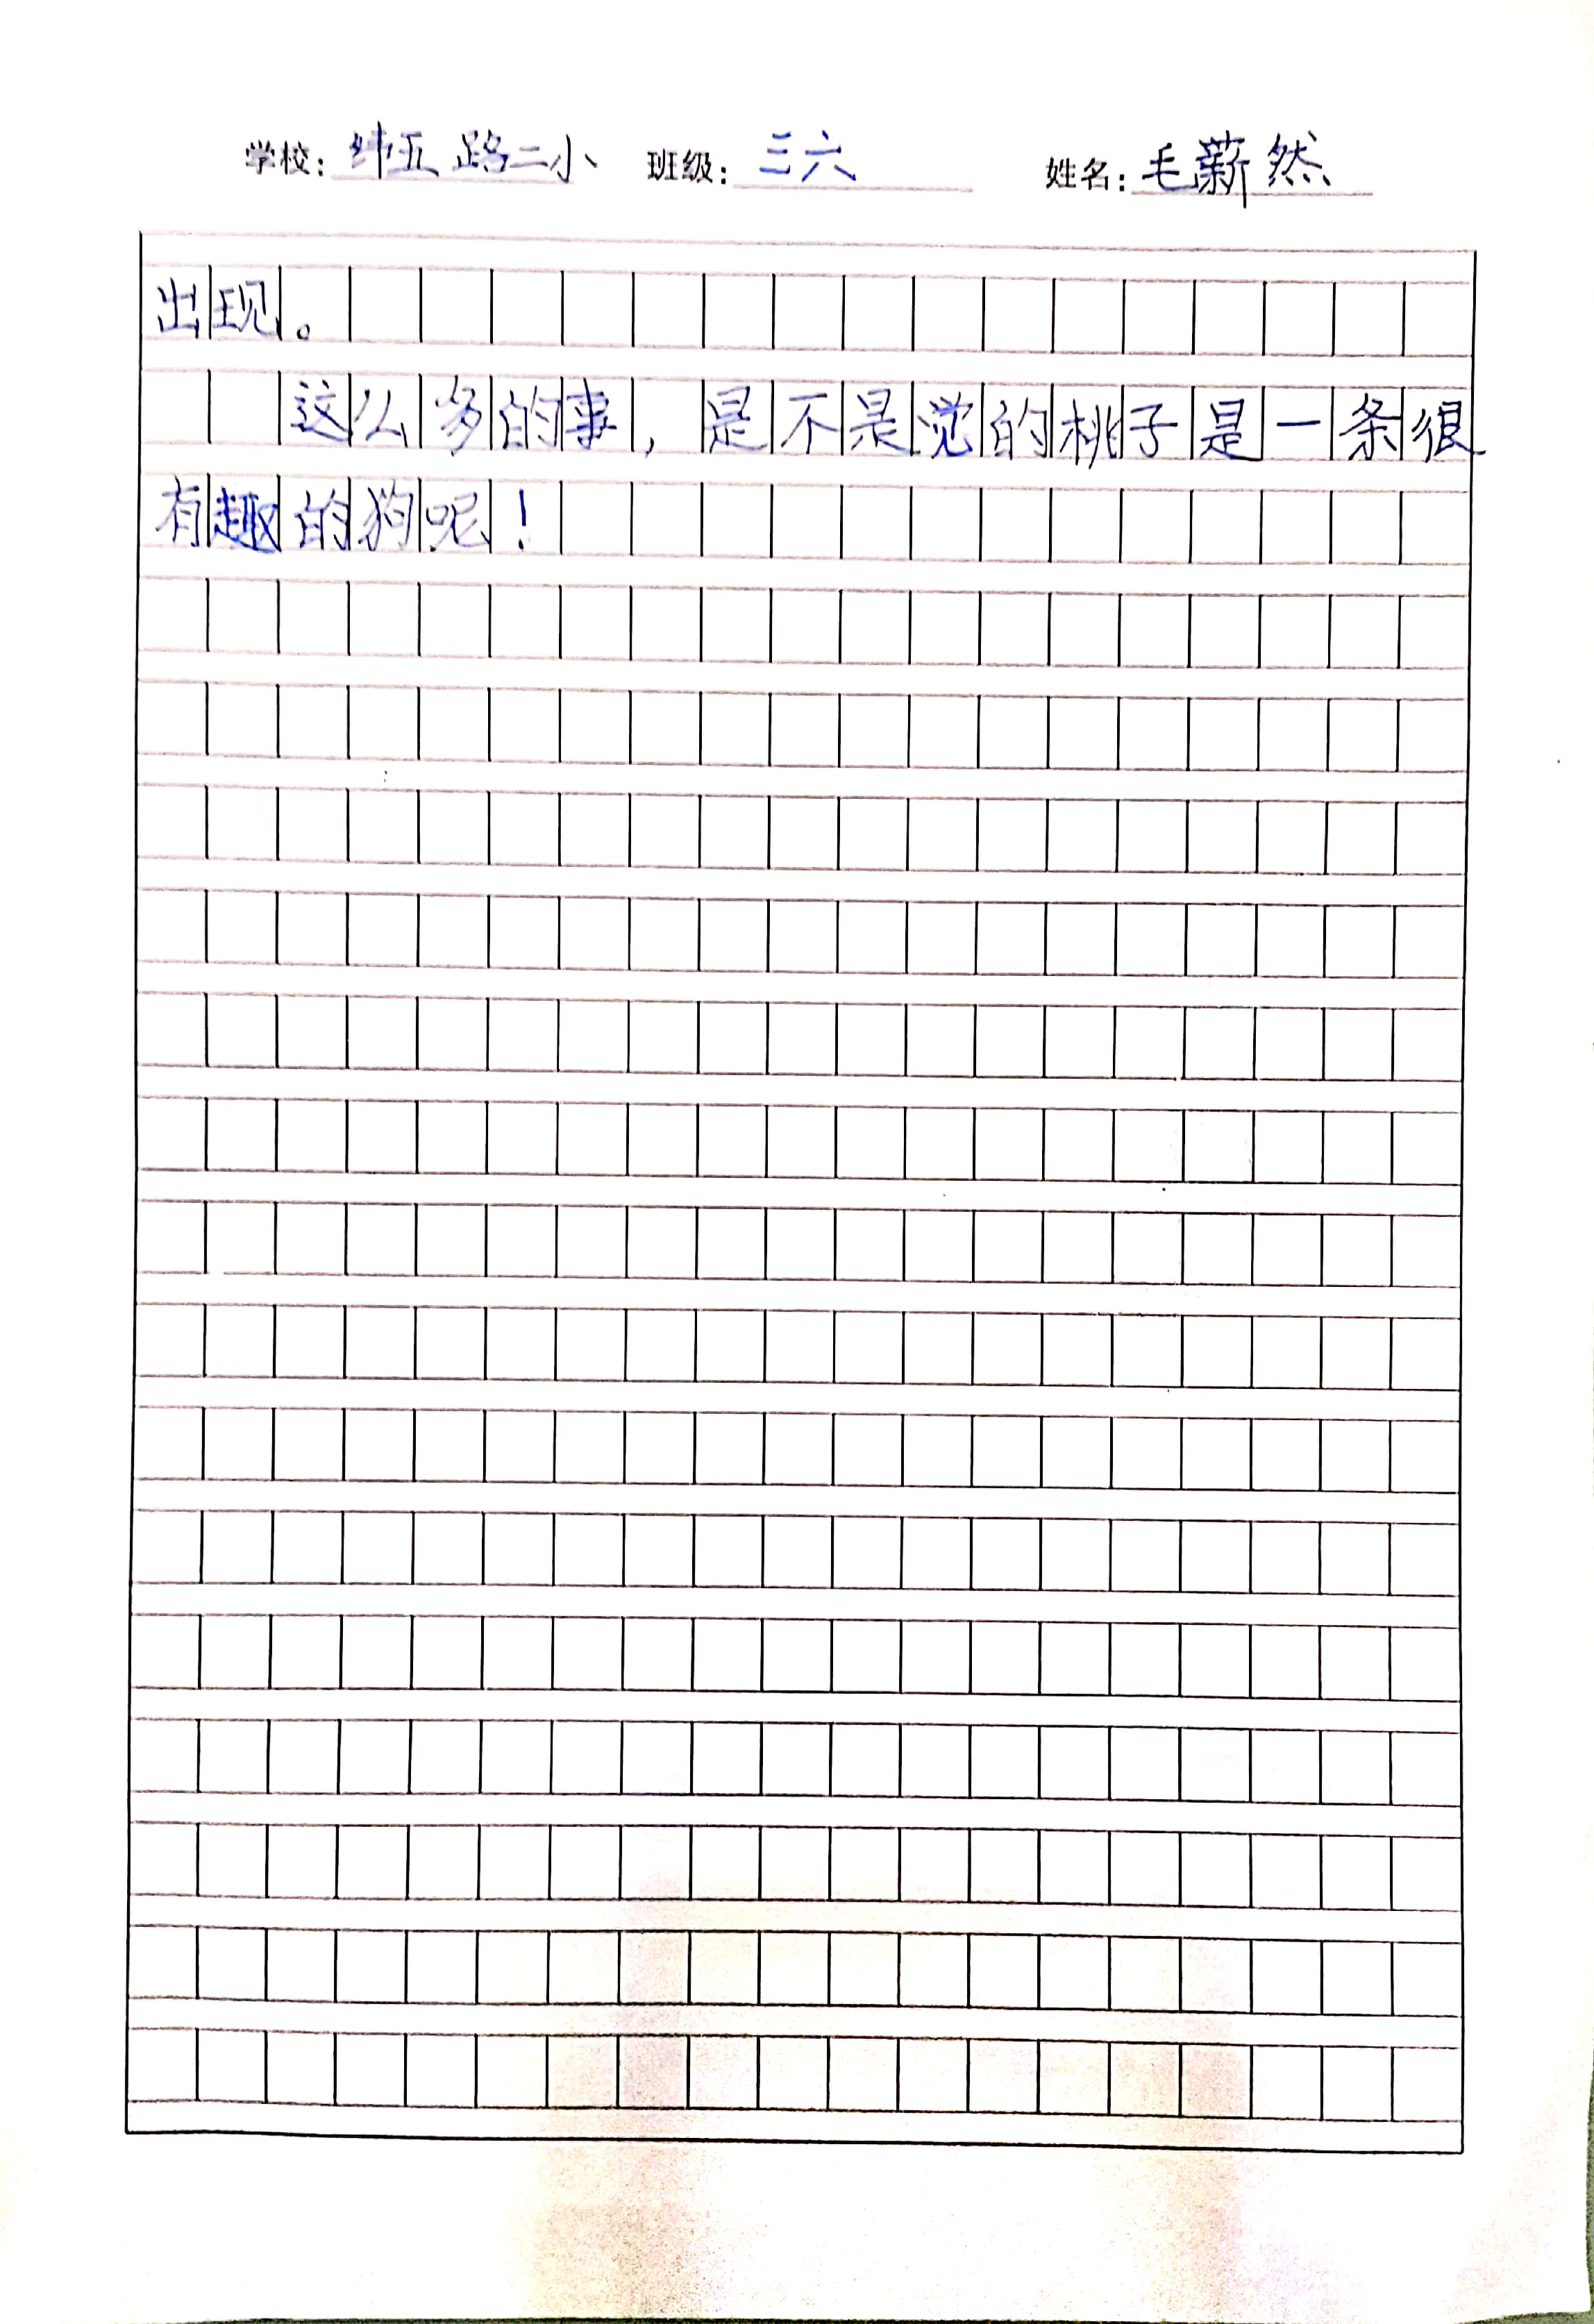 学校：纬五路二小 班级：三六 姓名：毛薪然
出现。
这么多的事，是不是觉的桃子是一条很
有趣的狗呢！